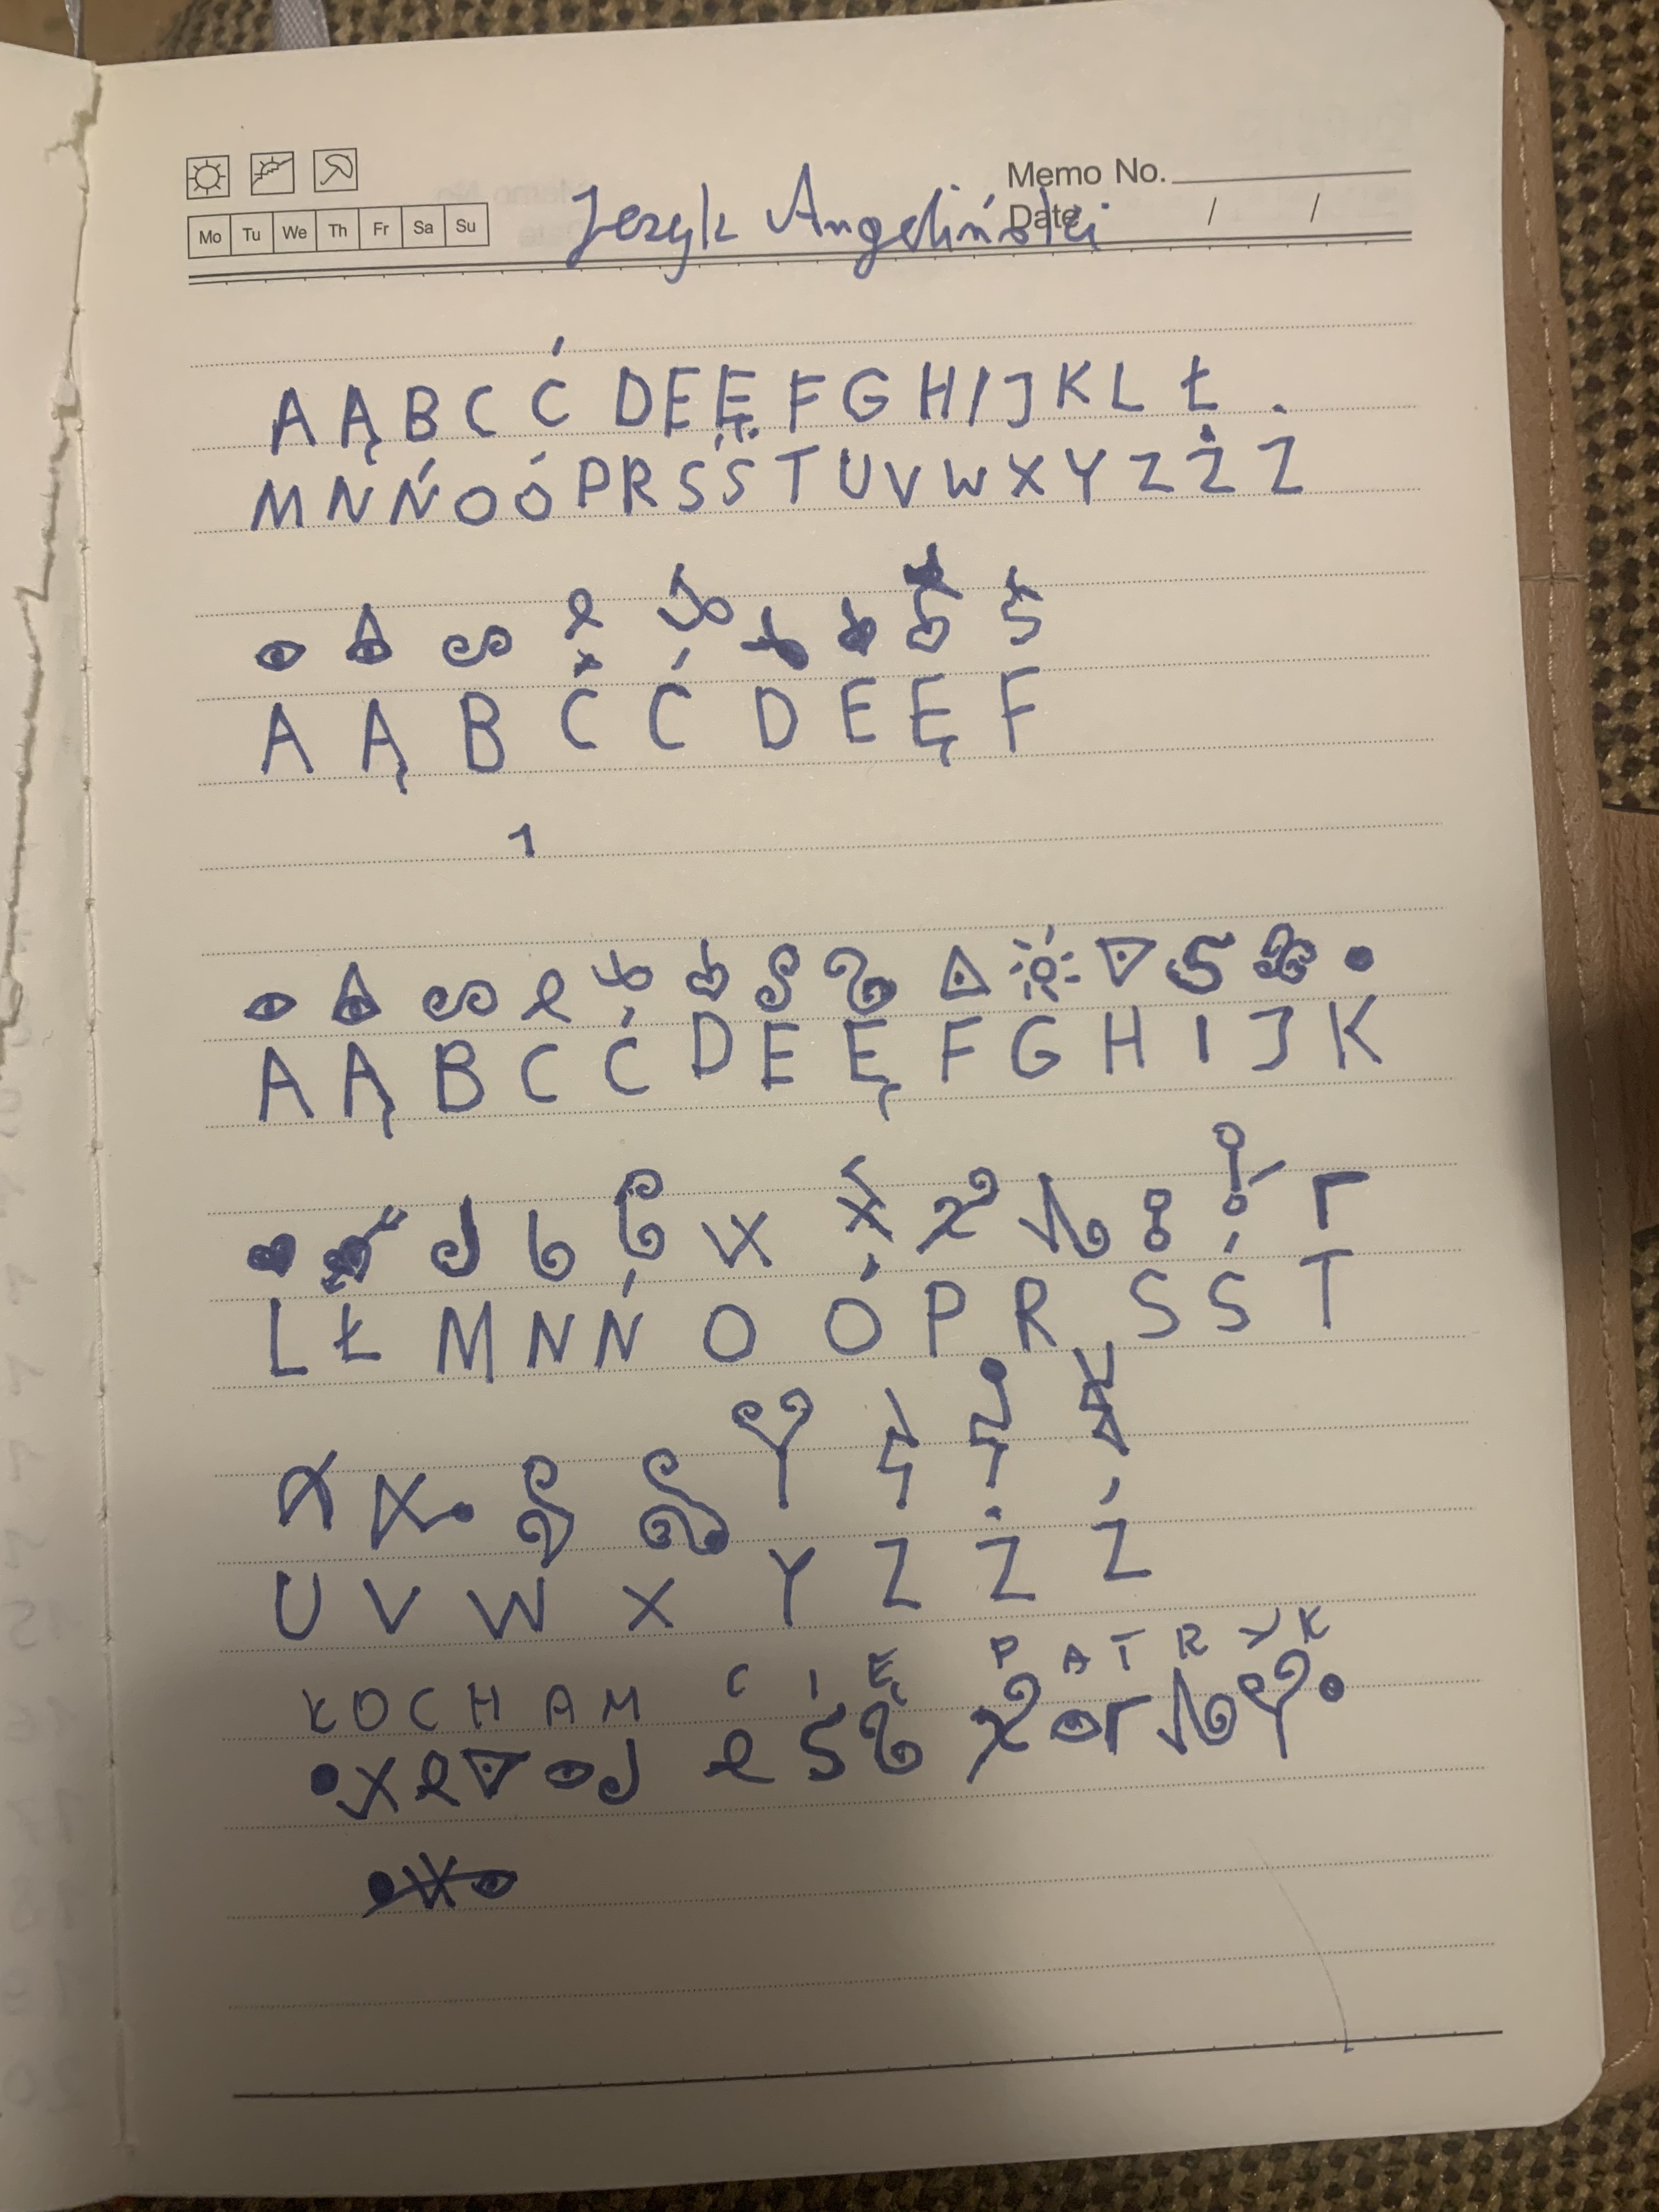 Memo No.
Date / /
Mo Tu We Th Fr Sa Su
Jezyk Angeliński
A Ą B C Ć D E Ę F G H I J K L Ł
M N Ń O Ó P R S Ś T U V W X Y Z Ż Z
A Ą B Ć Ć D E Ę F
1
A Ą B C Ć D E Ę F G H I J K
L Ł M N Ń O Ó P R S Ś T
U V W X Y Z Ż Ź
KOCHAM CIĘ PATRYK